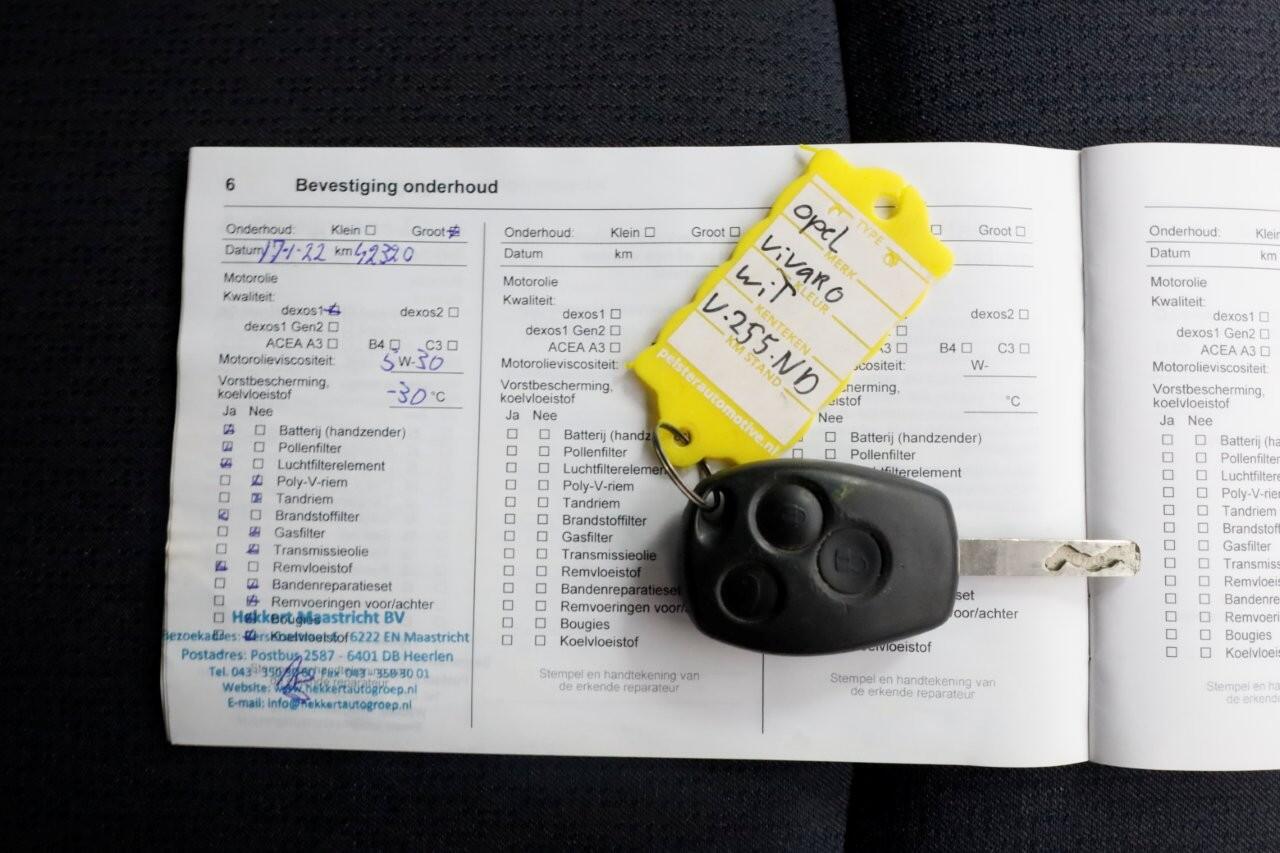 6 Bevestiging onderhoud
Onderhoud: Klein Groot
Datum 17-1-22 km 42320
Motorolie
Kwaliteit:
dexos1 dexos2
dexos1 Gen2
ACEA A3 B4 C3
Motorolieviscositeit: 5 W-30
Vorstbescherming,
koelvloeistof -30 °C
Ja Nee
Batterij (handzender)
Pollenfilter
Luchtfilterelement
Poly-V-riem
Tandriem
Brandstoffilter
Gasfilter
Transmissieolie
Remvloeistof
Bandenreparatieset
Remvoeringen voor/achter
Bougies
Koelvloeistof
Hekkert Maastricht BV
6222 EN Maastricht
Postadres: Postbus 2587 - 6401 DB Heerlen
Tel. 043 - Fax 043 - 358 30 01
Website: www.hekkertautogroep.nl
E-mail: info@hekkertautogroep.nl
Onderhoud: Klein Groot
Datum km
Motorolie
Kwaliteit:
dexos1
dexos1 Gen2
ACEA A3
Motorolieviscositeit:
Vorstbescherming,
koelvloeistof
Ja Nee
Batterij (handz
Pollenfilter
Luchtfilterelemen
Poly-V-riem
Tandriem
Brandstoffilter
Gasfilter
Transmissieolie
Remvloeistof
Bandenreparaties
Remvoeringen voor/
Bougies
Koelvloeistof
Stempel en handtekening van
de erkende reparateur
TYPE
Opel
MERK
Vivaro
KLEUR
Wit
KENTEKEN
V-255-ND
KM STAND
pelsterautomotive.nl
Groot
dexos2
A3 B4 C3
scositeit: W-
cherming,
lstof °C
Nee
Batterij (handzender)
Pollenfilter
Luchtfilterelement
set
voor/achter
Koelvloeistof
Stempel en handtekening van
de erkende reparateur
Onderhoud: Klein
Datum km
Motorolie
Kwaliteit:
dexos1
dexos1 Gen2
ACEA A3
Motorolieviscositeit:
Vorstbescherming,
koelvloeistof
Ja Nee
Batterij (ha
Pollenfilter
Luchtfilte
Poly-V-rie
Tandriem
Brandsto
Gasfilter
Transmis
Remvloei
Bandenre
Remvoeri
Bougies
Koelvloei
Stempel en h
de erkend